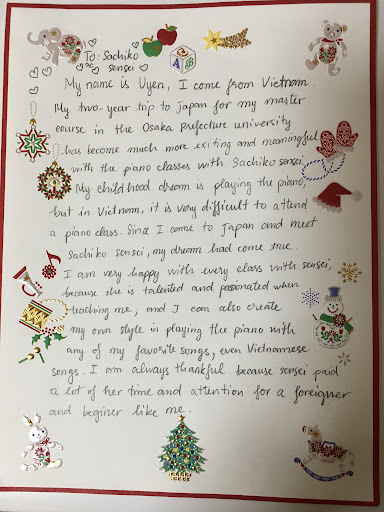 To: Sachiko
sensei
A B
My name is Uyen, I come from Vietnam.
My two-year trip to Japan for my master
course in the Osaka Prefecture university
has become much more exiting and meaningful
with the piano classes with Sachiko sensei.
My childhood dream is playing the piano,
but in Vietnam, it is very difficult to attend
a piano class. Since I come to Japan and meet
Sachiko sensei, my dream had come true.
I am very happy with every class with sensei,
because she is talented and passonated when
teaching me, and I can also create
my own style in playing the piano with
any of my favorite songs, even Vietnamese
songs. I am always thankful because sensei paid
a lot of her time and attention for a foreigner
and beginer like me.